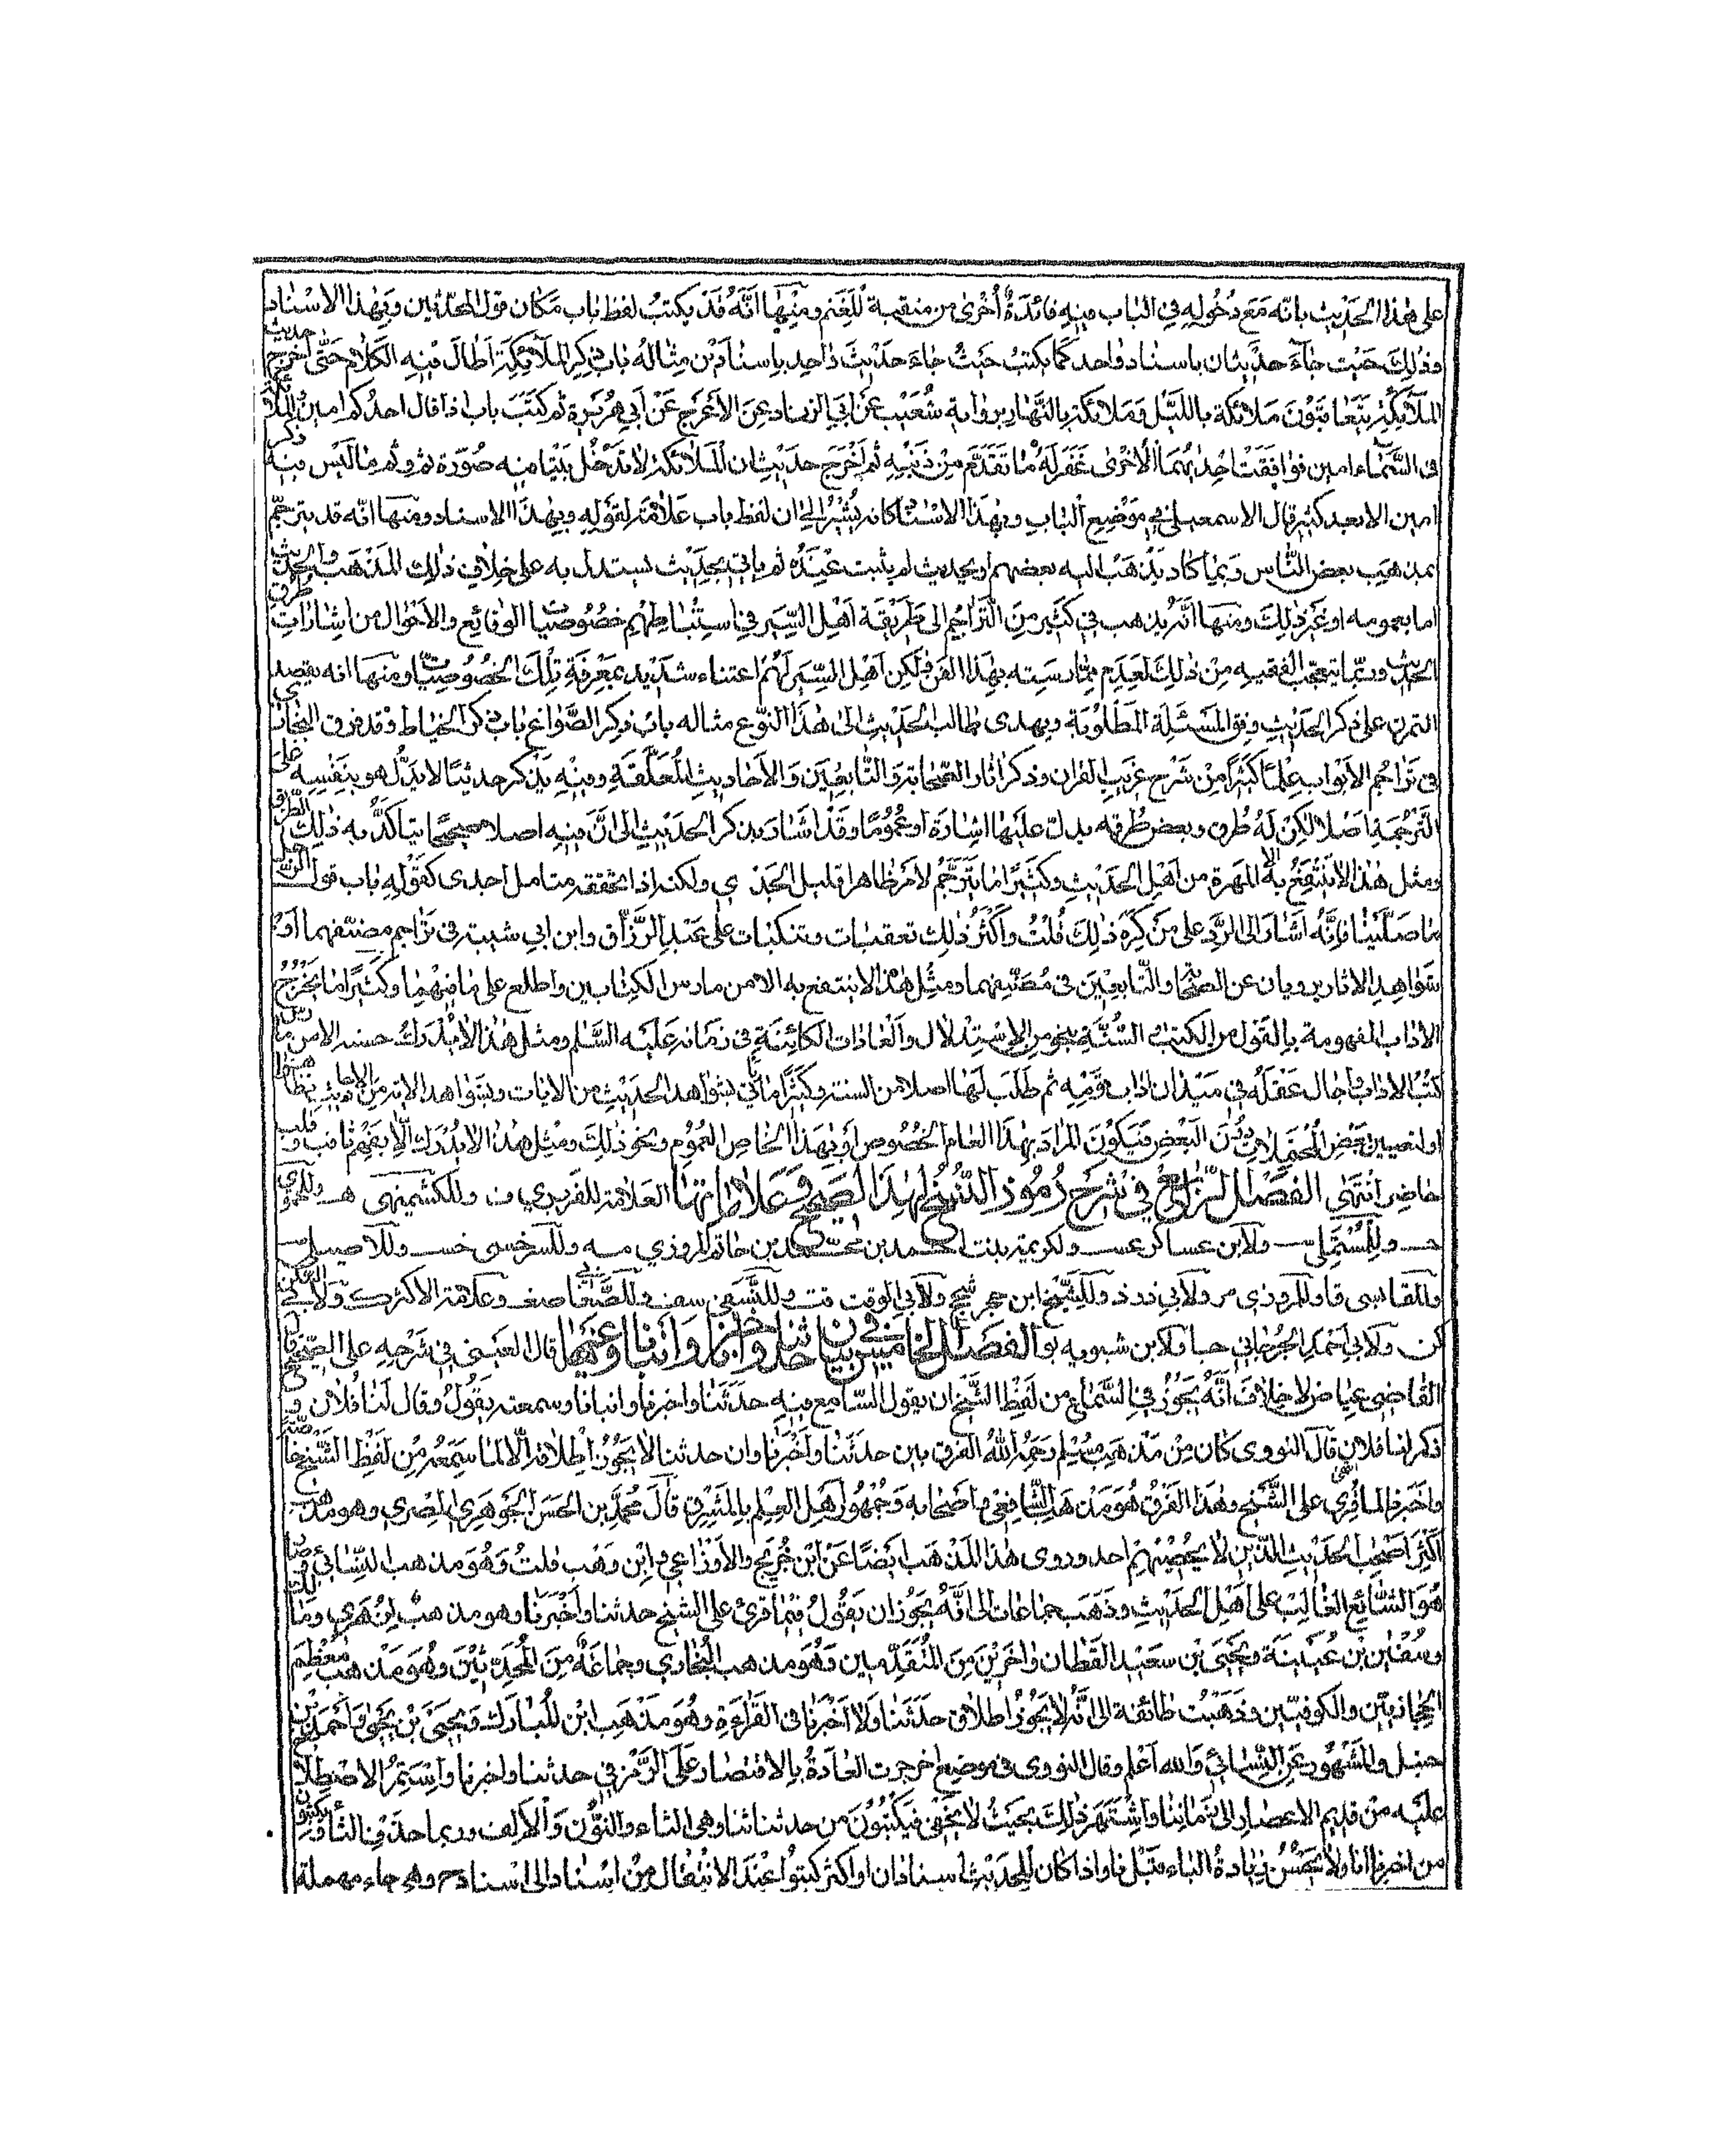 على هذا الحديث بانه مع دخوله في الباب فيه فائدة اخرى من منقبة للغنم ومنها انه قد يكتب لفظ باب مكان قول المحدثين وبهذا الاسناد
وذلك حيث جاء حديثان باسناد واحد كما يكتب حيث جاء حديث واحد باسنادين مثاله باب ذكر الملائكة اطال فيه الكلام حتى اخرج حديث
الملائكة يتعاقبون ملائكة بالليل وملائكة بالنهار برواية شعيب عن ابي الزناد عن الاعرج عن ابي هريرة ثم كتب باب اذا قال احدكم امين والملائكة
في السماء امين فوافقت احديهما الاخرى غفر له ما تقدم من ذنبه ثم اخرج حديث ان الملائكة لا تدخل بيتا فيه صورة ثم وثم ما ليس فيه ذكر
امين الا بعد كثير قال الاسمعيلي في موضع الباب وبهذا الاسناد كانه يشير الى ان لفظ باب علامة لقوله وبهذا الاسناد ومنها انه قد يترجم
بمذهب بعض الناس وبما كاد يذهب اليه بعضهم او بحديث لم يثبت عنده ثم ياتي بحديث يستدل به على خلاف ذلك المذهب والحديث
اما بعمومه او غير ذلك ومنها انه يذهب في كثير من التراجم الى طريقة اهل السير في استنباطهم خصوصيات الوقائع والاحوال من اشارات طرق
الحديث وربما يتعجب الفقيه من ذلك لعدم ممارسته بهذا الفن ولكن اهل السير لهم اعتناء شديد بمعرفة تلك الخصوصيات ومنها انه يقصد
التمرن على ذكر الحديث وفق المسئلة المطلوبة ويهدى طالب الحديث الى هذا النوع مثاله باب ذكر الصواغ باب ذكر الخياط وقد فرق البخاري
في تراجم الابواب علما كثيرا من شرح غريب القران وذكر اثار الصحابة والتابعين والاحاديث المعلقة وفيه يذكر حديثا لا يدل هو بنفسه على
الترجمة اصلا لكن له طرق وبعض طرقه يدل عليها اشارة او عموما وقد اشار بذكر الحديث الى ان فيه اصلا صحيحا يتاكد به ذلك الطرق
ومثل هذا لا ينتفع به الا المهرة من اهل الحديث وكثيرا ما يترجم لامر ظاهرا قليل الجدوي ولكنه اذا تحققه متامل اجدى كقوله باب قول الرجل
ما صلينا فانه اشار الى الرد على من كره ذلك قلت واكثر ذلك تعقبات وتنكيتات على عبد الرزاق وابن ابي شيبة في تراجم مصنفيهما او
شواهد الاثار يرويان عن الصحابة والتابعين في مصنفيهما ومثل هذا لا ينتفع به الا من مارس الكتابين واطلع على ما فيهما وكثيرا ما يخرج
الاداب المفهومة بالقول من الكتاب السنة بنحو من الاستدلال والعادات الكائنة في زمانه عليه السلام ومثل هذا لا يدرك حسنه الا من مارس
كتب الاداب واجال عقله في ميدان اداب قومه ثم طلب لها اصلا من السنة وكثيرا ما ياتي بشواهد الحديث من الايات وبشواهد الاية من الاحاديث تظاهرا
او لتعيين بعض المحتملات دون البعض فيكون المراد بهذا العام الخصوص او بهذا الخاص العموم ونحو ذلك ومثل هذا لا يدرك الا بفهم ثاقب وقلب
حاضر انتهى الفصل الرابع في شرح رموز النسخ لهذا الصحيح وعلاماتها العلامة للفربري ف وللكشميهنى هـ وللحموي
حـ وللمستملي سـ ولابن عساكر عسـ ولكريمة بنت احمد بن محمد بن حاتم المروزي مه وللسرخسى خسـ وللاصيلي صـ
وللقابسى قا وللمروزى مر ولابي ذر ذ وللشيخ ابن حجر شج ولابي الوقت قت وللنسفي سف وللصغاني صغـ وعلامة الاكثر ك ولابن السكن
كن ولابي احمد الجرجاني جا ولابن شبويه بو الفصل الخامس في بيان حدثنا واخبرنا وانبانا وعنهما قال العيني في شرحه على الصحيح قال
القاضي عياض لا خلاف انه يجوز في السماع من لفظ الشيخ ان يقول السامع فيه حدثنا واخبرنا وانبانا وسمعته يقول وقال لنا فلان و
ذكر لنا فلان قال النووى كان من مذهب مسلم رحمه الله الفرق بين حدثنا واخبرنا وان حدثنا لا يجوز اطلاقه الا لما سمعه من لفظ الشيخ خاصة
واخبرنا لما قرئ على الشيخ وهذا الفرق هو مذهب الشافعي واصحابه وجمهور اهل العلم بالمشرق قال محمد بن الحسن الجوهري المصري وهو مذهب
اكثر اصحاب الحديث الذين لا يحصيهم احد وروى هذا المذهب ايضا عن ابن جريج والاوزاعي وابن وهب قلت وهو مذهب النسائي وصار
هو الشائع الغالب على اهل الحديث وذهب جماعات الى انه يجوز ان يقول فيما قرئ على الشيخ حدثنا واخبرنا وهو مذهب الزهري ومالك
وسفين بن عيينة ويحيى بن سعيد القطان واخرين من المتقدمين وهو مذهب البخاري وجماعة من المحدثين وهو مذهب معظم
الحجازيين والكوفيين وذهبت طائفة الى انه لا يجوز اطلاق حدثنا ولا اخبرنا في القراءة وهو مذهب ابن المبارك ويحيى بن يحيى واحمد بن
حنبل والمشهور عن النسائي والله اعلم وقال النووى في موضع اخر جرت العادة بالاقتصار على الرمز في حدثنا واخبرنا واستمر الاصطلاح
عليه من قديم الاعصار الى زماننا واشتهر ذلك بحيث لا يخفى فيكتبون من حدثنا ثنا وهي الثاء والنون والالف وربما حذفنا الثاء ويكتبون
من اخبرنا انا ولا تحسن زيادة الباء قبل نا واذا كان للحديث اسنادان او اكثر كتبوا عند الانتقال من اسناد الى اسناد ح وهي حاء مهملة